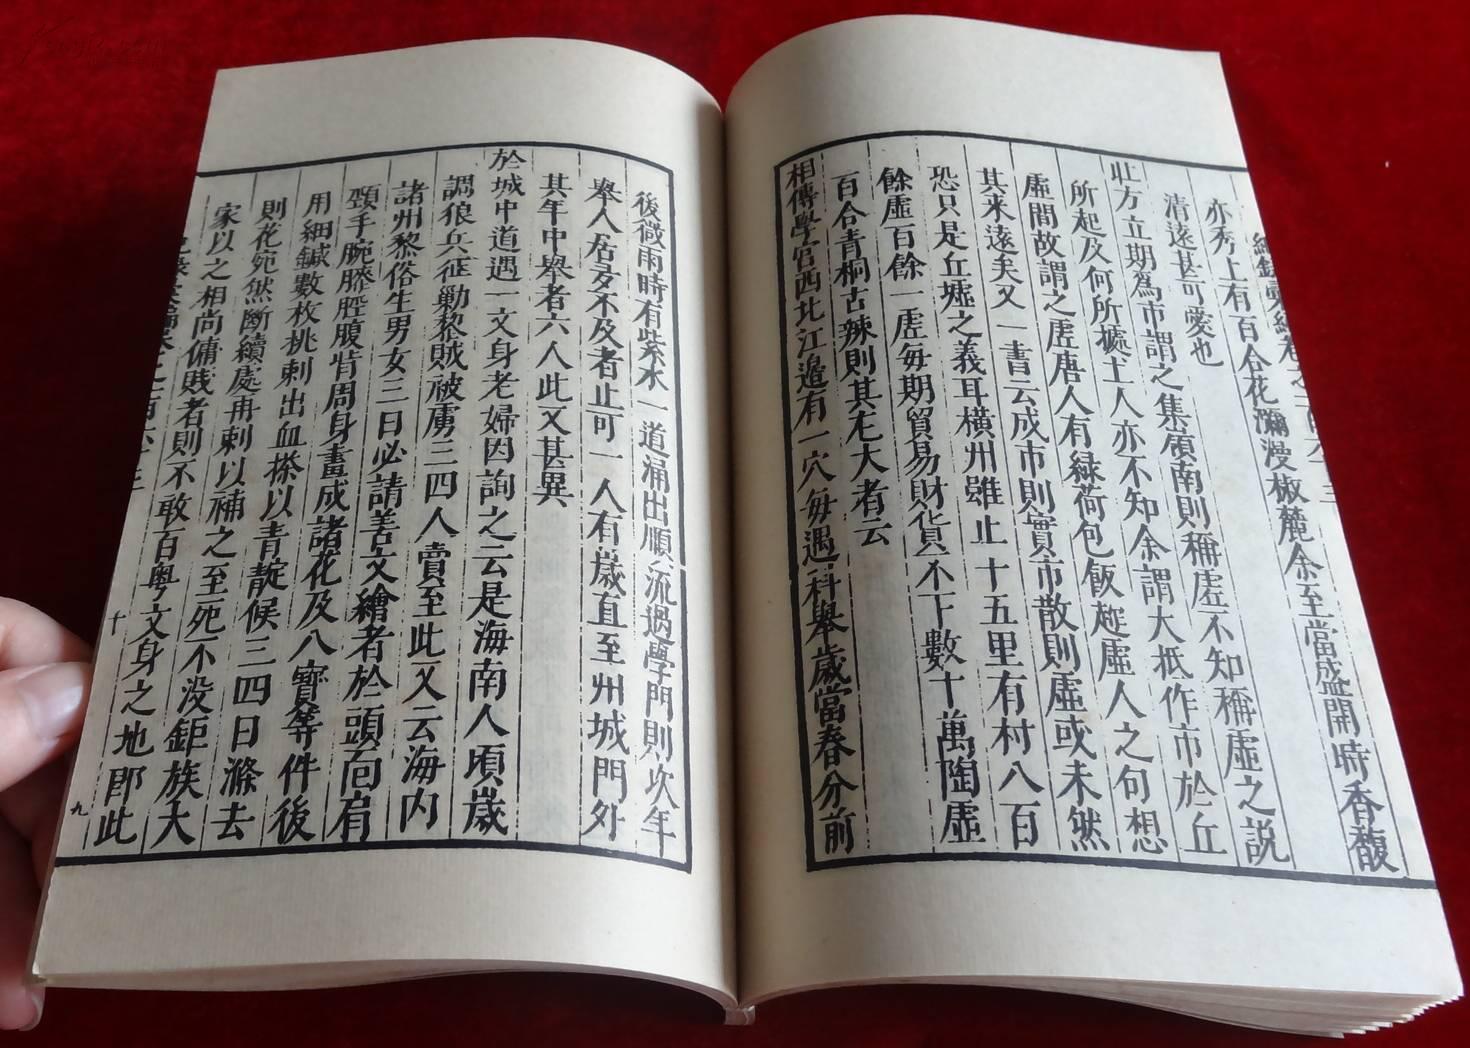 亦秀上有百合花瀰漫椒麓余至當盛開時香馥
清遠甚可愛也
此方立期為市謂之集嶺南則稱虛不知稱虛之説
所起及何所據土人亦不知余謂大抵作市於丘
虛間故謂之虛唐人有緑荷包飯趂虛人之句想
其來遠矣又一書云成市則實市散則虛或未然
恐只是丘墟之義耳橫州雖止十五里有村八百
餘虛百餘一虛每期貿易財貨不下數十萬陶虛
百合青桐古辣則其尤大者云
相傳學宫西北江邉有一穴每遇科舉歲當春分前
後微雨時有紫水一道涌出順流過學門則次年
舉人居多不及者止可一人有歲直至州城門外
其年中舉者六人此又甚異
於城中道遇一文身老婦因詢之云是海南人頃歲
調狼兵征勦黎賊被虜三四人賣至此又云海内
諸州黎俗生男女三日必請善文繪者於頭面肩
頸手腕膝脛腹背周身畫成諸花及八寳等件後
用細鍼數枚挑刺出血搽以青靛候三四日滌去
則花宛然斷續處再刺以補之至死不没鉅族大
家以之相尚傭賎者則不敢百粤文身之地即此
十
九